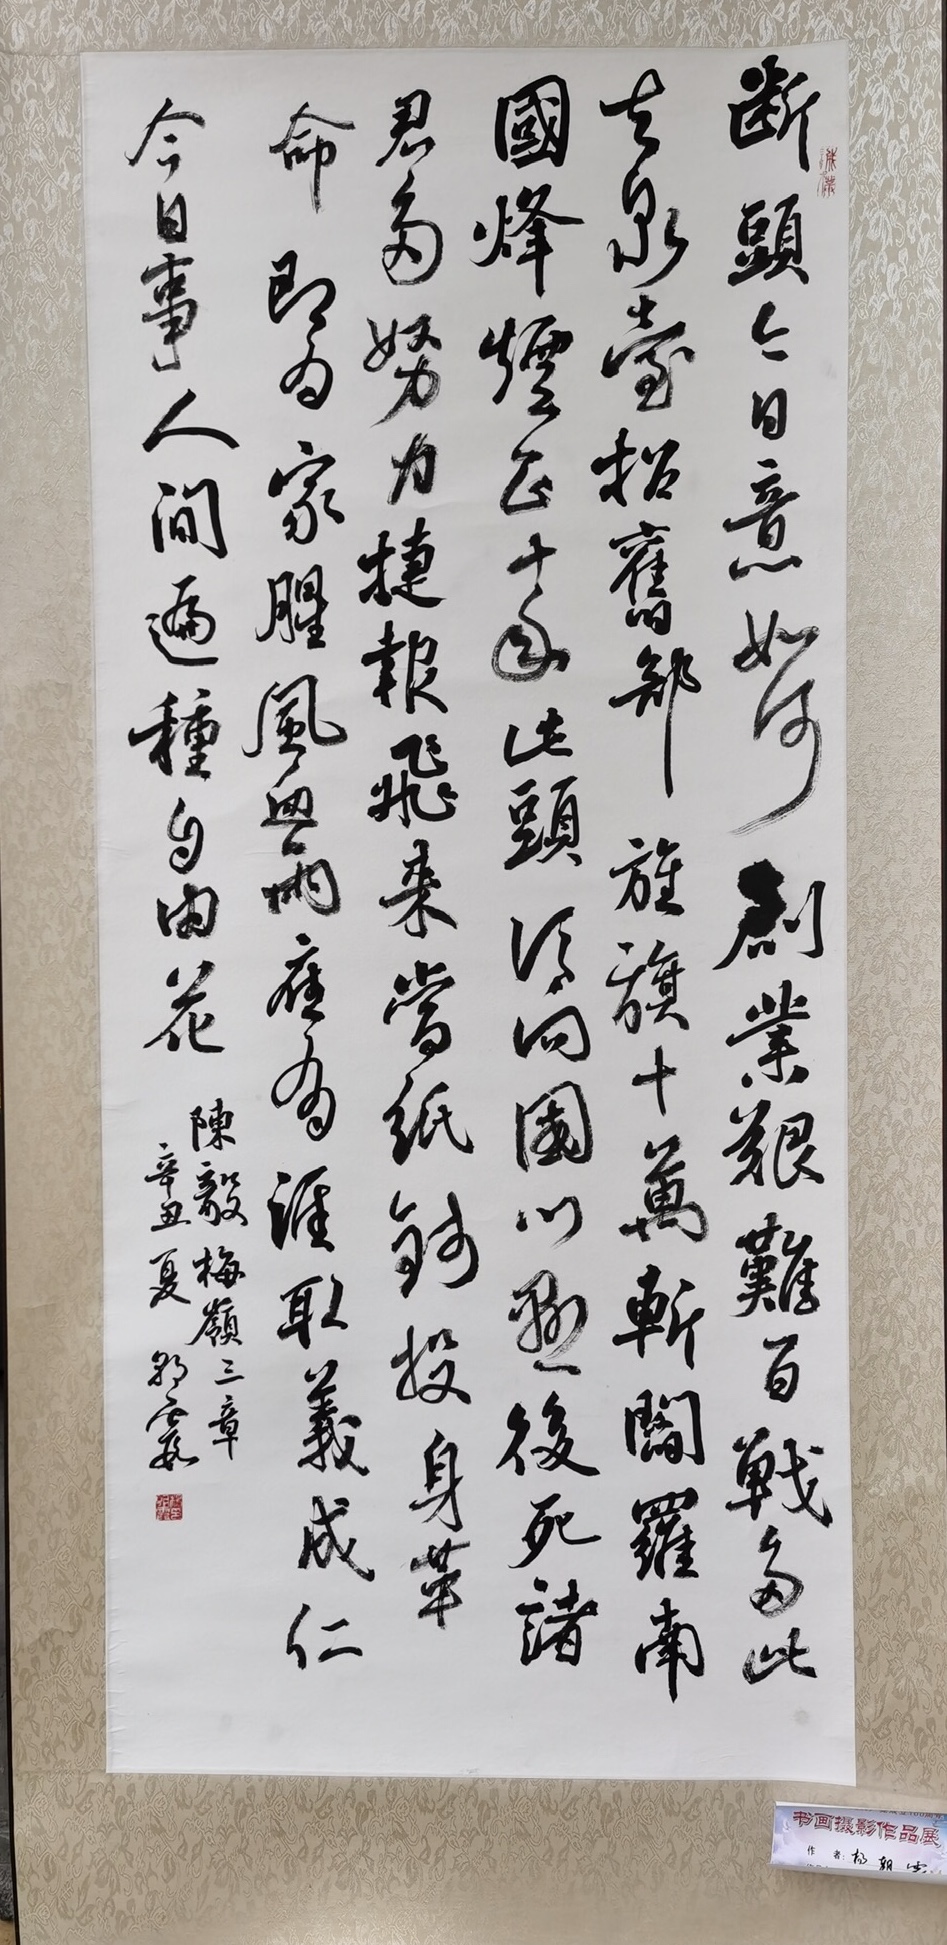 断頭今日意如何創業艱難百戰多此
去泉臺招舊部旌旗十萬斬閻羅南
國烽煙正十年此頭須向國門懸後死諸
君多努力捷報飛来當紙錢投身革
命即為家腥風血雨應有涯取義成仁
今日事人間遍種自由花
陳毅梅嶺三章
辛丑夏 朝霞
书画摄影作品展
作 者: 朝